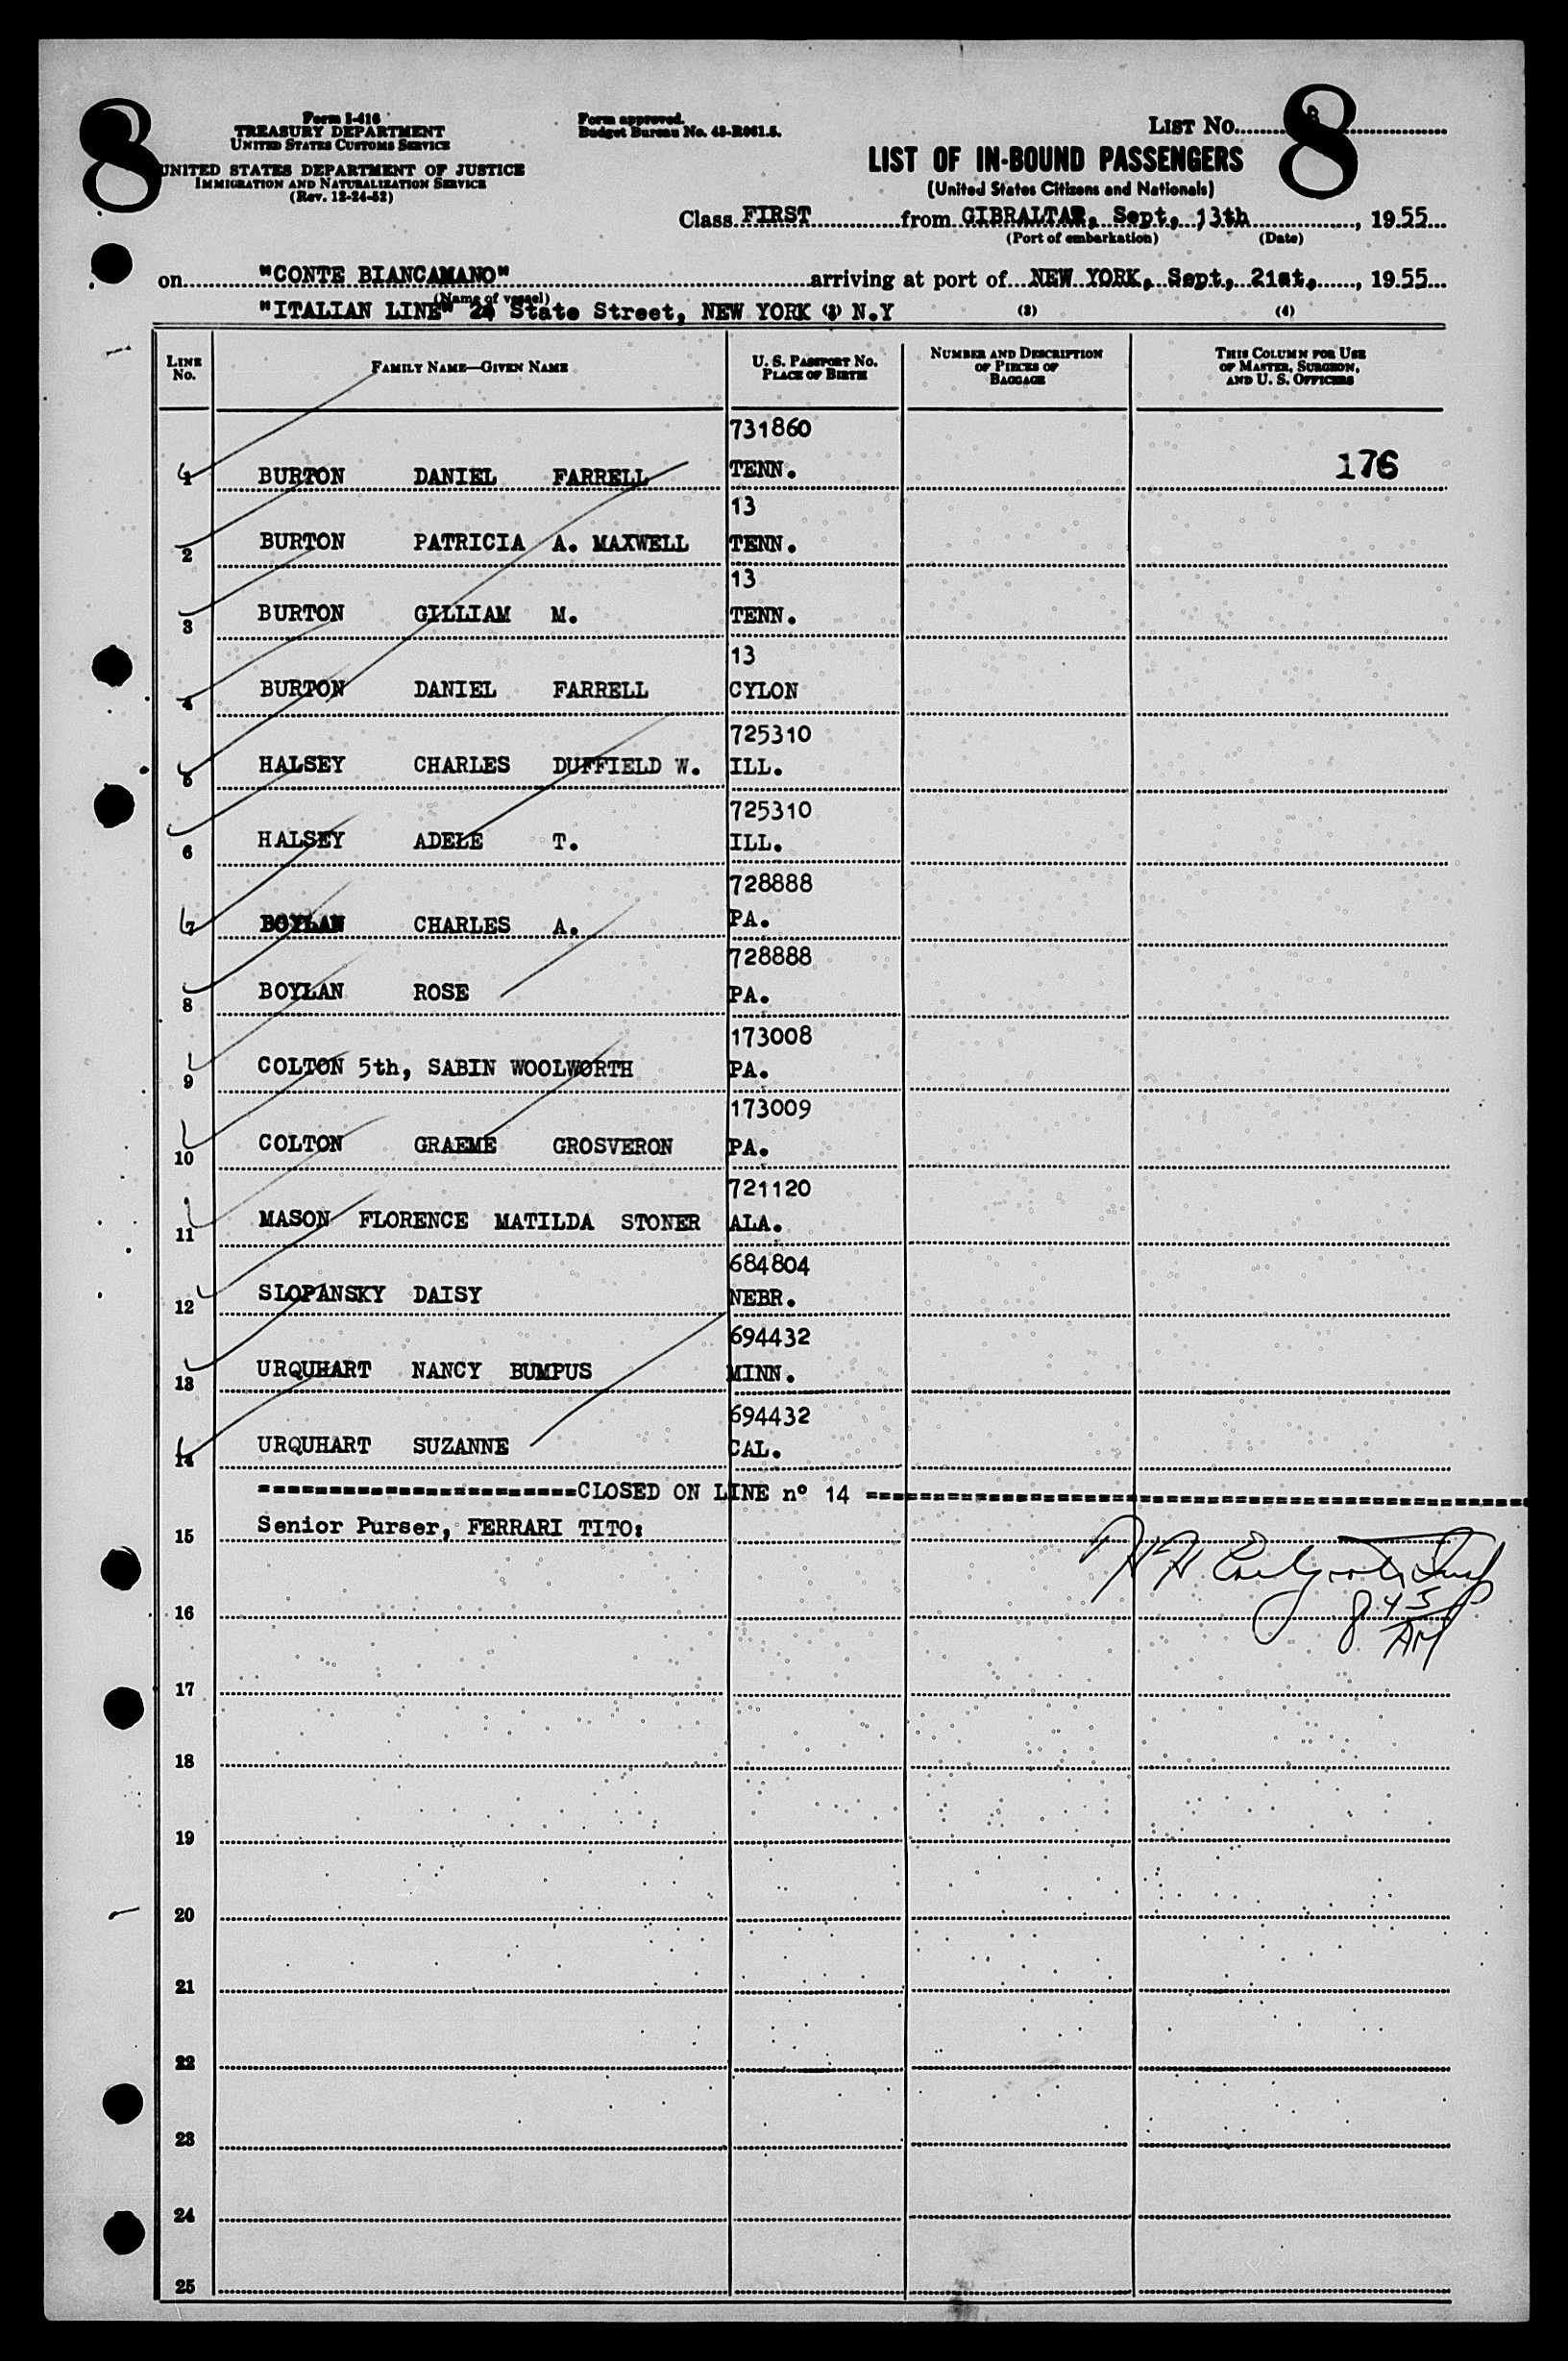 8
Form I-416
TREASURY DEPARTMENT
UNITED STATES CUSTOMS SERVICE
UNITED STATES DEPARTMENT OF JUSTICE
IMMIGRATION AND NATURALIZATION SERVICE
(Rev. 12-24-52)
Form approved.
Budget Bureau No. 43-R061.5.
LIST No. 8
LIST OF IN-BOUND PASSENGERS
(United States Citizens and Nationals)
Class FIRST from GIBRALTAR, Sept, 13th, 1955
(Port of embarkation) (Date)
on "CONTE BIANCAMANO" arriving at port of NEW YORK, Sept, 21st, 1955
(Name of vessel)
"ITALIAN LINE" 24 State Street, NEW YORK N.Y (3) (4)
LINE No. FAMILY NAME—GIVEN NAME U. S. PASSPORT NO. PLACE OF BIRTH NUMBER AND DESCRIPTION OF PIECES OF BAGGAGE THIS COLUMN FOR USE OF MASTER, SURGEON, AND U. S. OFFICERS
731860
1 BURTON DANIEL FARRELL TENN. 176
13
2 BURTON PATRICIA A. MAXWELL TENN.
13
3 BURTON GILLIAM M. TENN.
13
4 BURTON DANIEL FARRELL CYLON
725310
5 HALSEY CHARLES DUFFIELD W. ILL.
725310
6 HALSEY ADELE T. ILL.
728888
7 BOYLAN CHARLES A. PA.
728888
8 BOYLAN ROSE PA.
173008
9 COLTON 5th, SABIN WOOLWORTH PA.
173009
10 COLTON GRAEME GROSVERON PA.
721120
11 MASON FLORENCE MATILDA STONER ALA.
684804
12 SLOPANSKY DAISY NEBR.
694432
13 URQUHART NANCY BUMPUS MINN.
694432
14 URQUHART SUZANNE CAL.
=======================CLOSED ON LINE nº 14 ================================================
15 Senior Purser, FERRARI TITO:
16 8 45 AM
17
18
19
20
21
22
23
24
25